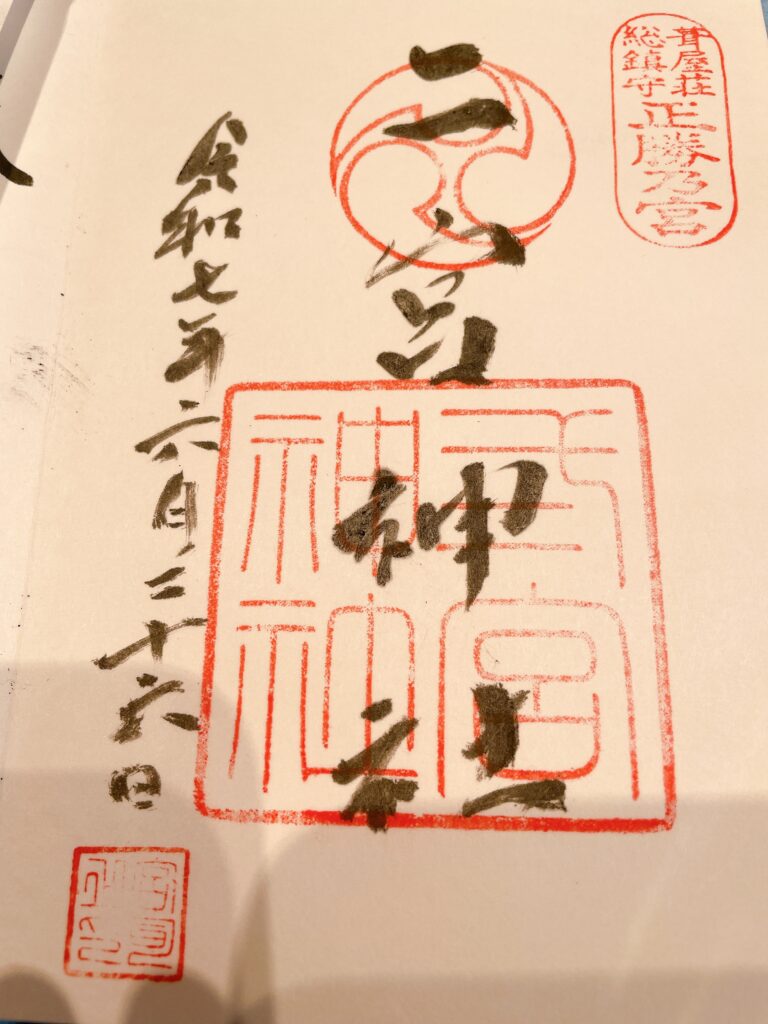 葺屋荘
総鎮守
正勝乃宮
二宮神社
弍宮
神社
令和七年六月二十六日